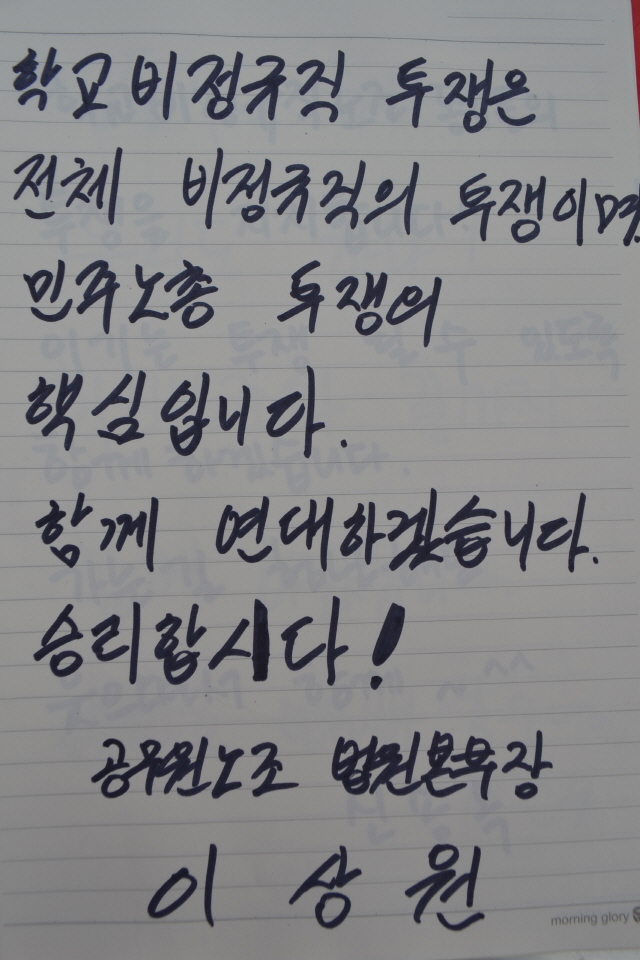 학교비정규직 투쟁은
전체 비정규직의 투쟁이며,
민주노총 투쟁의
핵심입니다.
함께 연대하겠습니다.
승리합시다!
공무원노조 법원본부장
이상원
morning glory